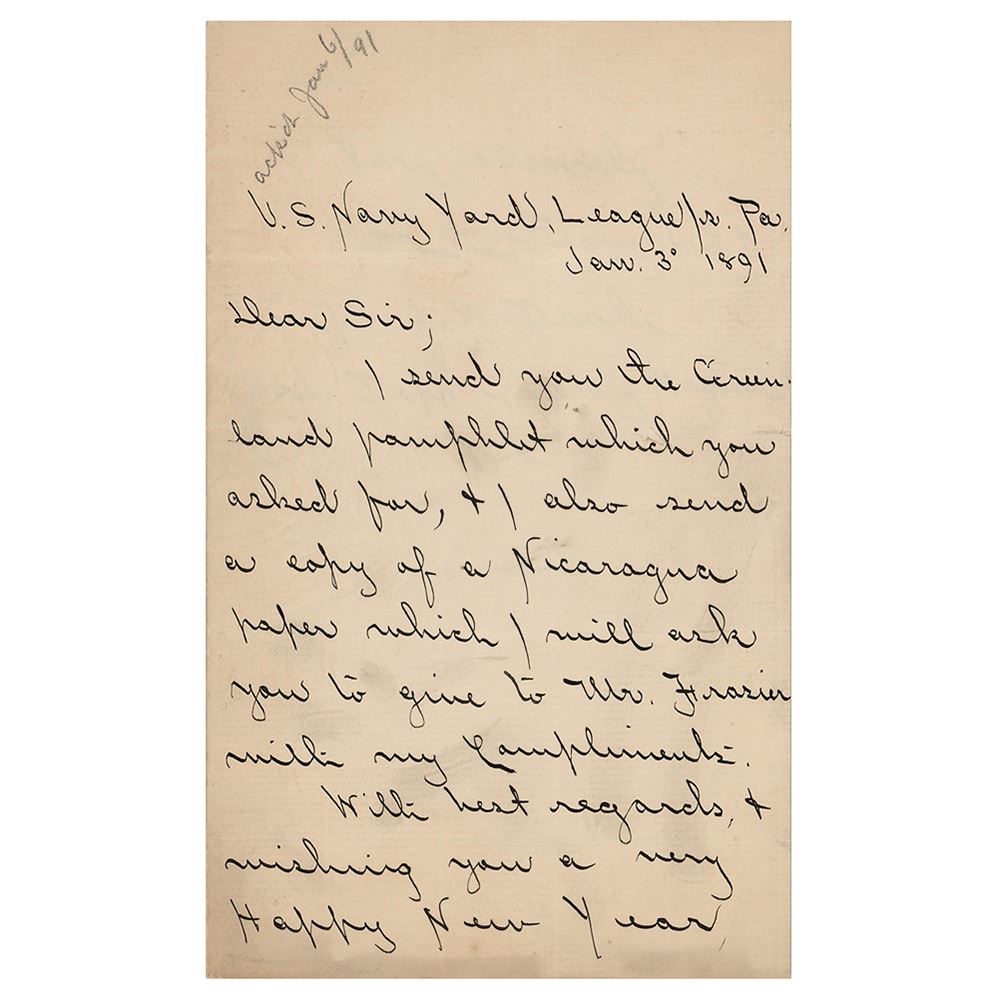 ack'd Jan 6/91
U.S. Navy Yard, League Is. Pa.
Jan. 3° 1891
Dear Sir;
I send you the Green-
land pamphlet which you
asked for, & I also send
a copy of a Nicaragua
paper which I will ask
you to give to Mr. Frazier
with my Compliments.
With best regards, &
wishing you a very
Happy New Year,